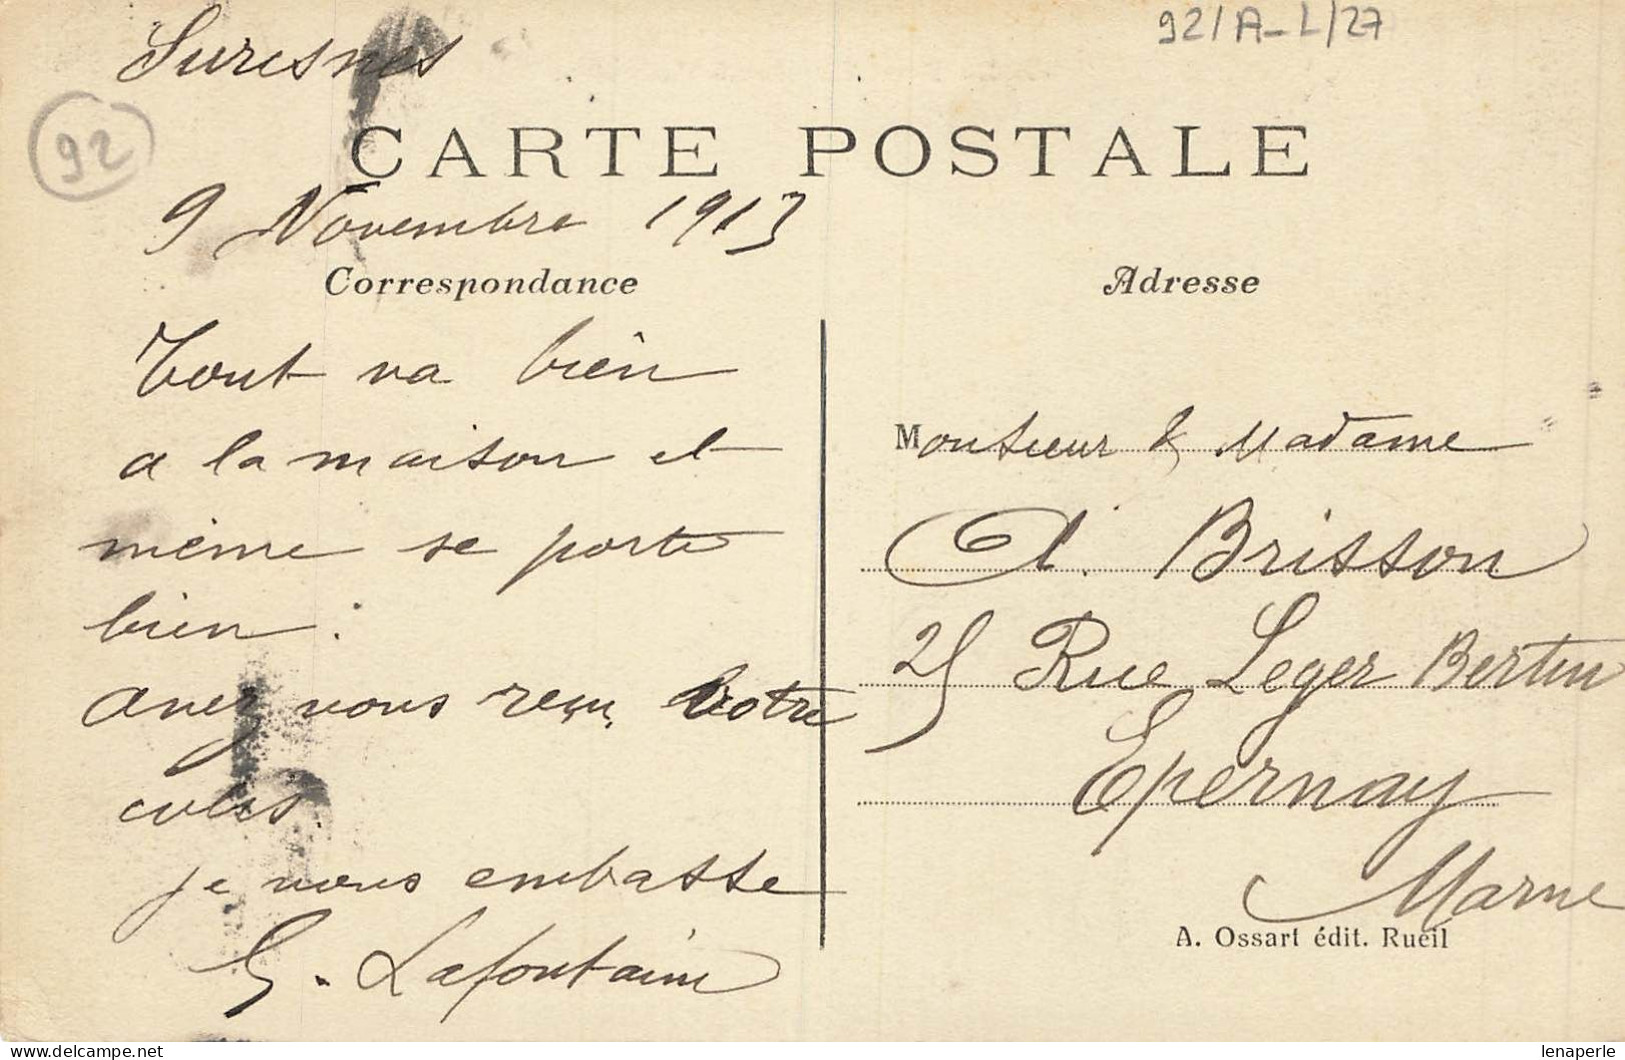 92/A-L/27
Suresnes
92
CARTE POSTALE
9 Novembre 1913
Correspondance
Tout va bien
a la maison et
mémé se porte
bien.
avez vous reçu votre
colis.
je vous embasse
G. Lafontaine
Adresse
Monsieur & Madame
A. Brisson
25 Rue Leger Bertin
Epernay
Marne
A. Ossart édit. Rueil
lenaperle